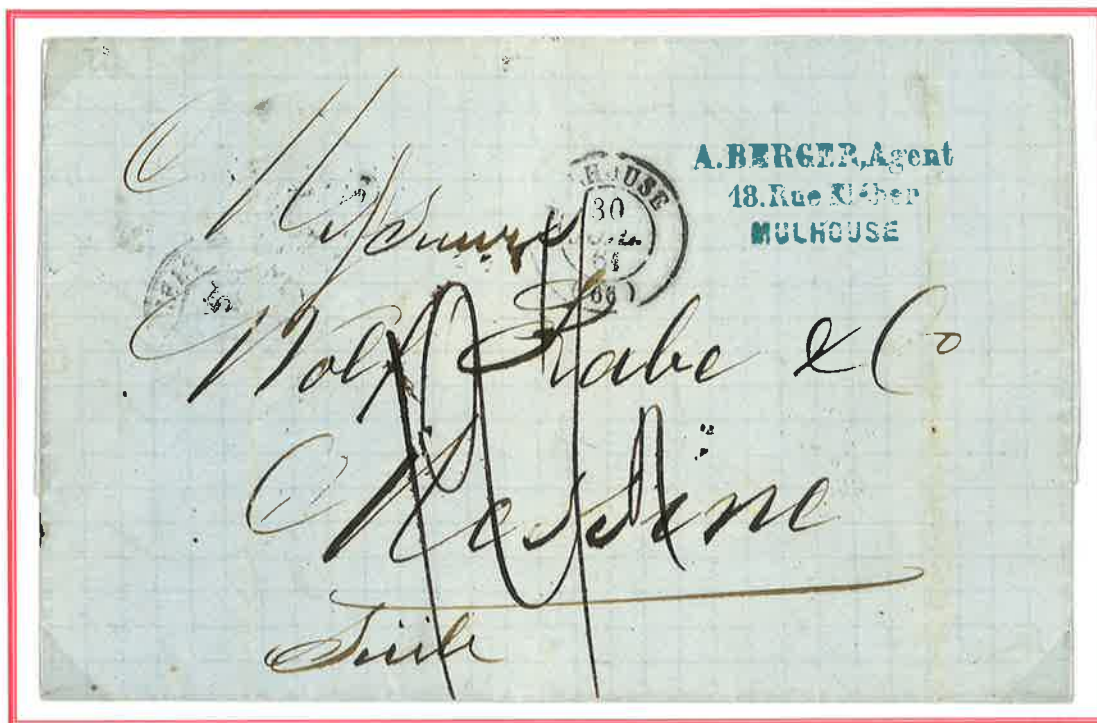 A. BERGER, Agent
18. Rue Kléber
MULHOUSE
HOUSE
30
66
Messieurs
Wolf Rabe & Co
Messine
Sicile